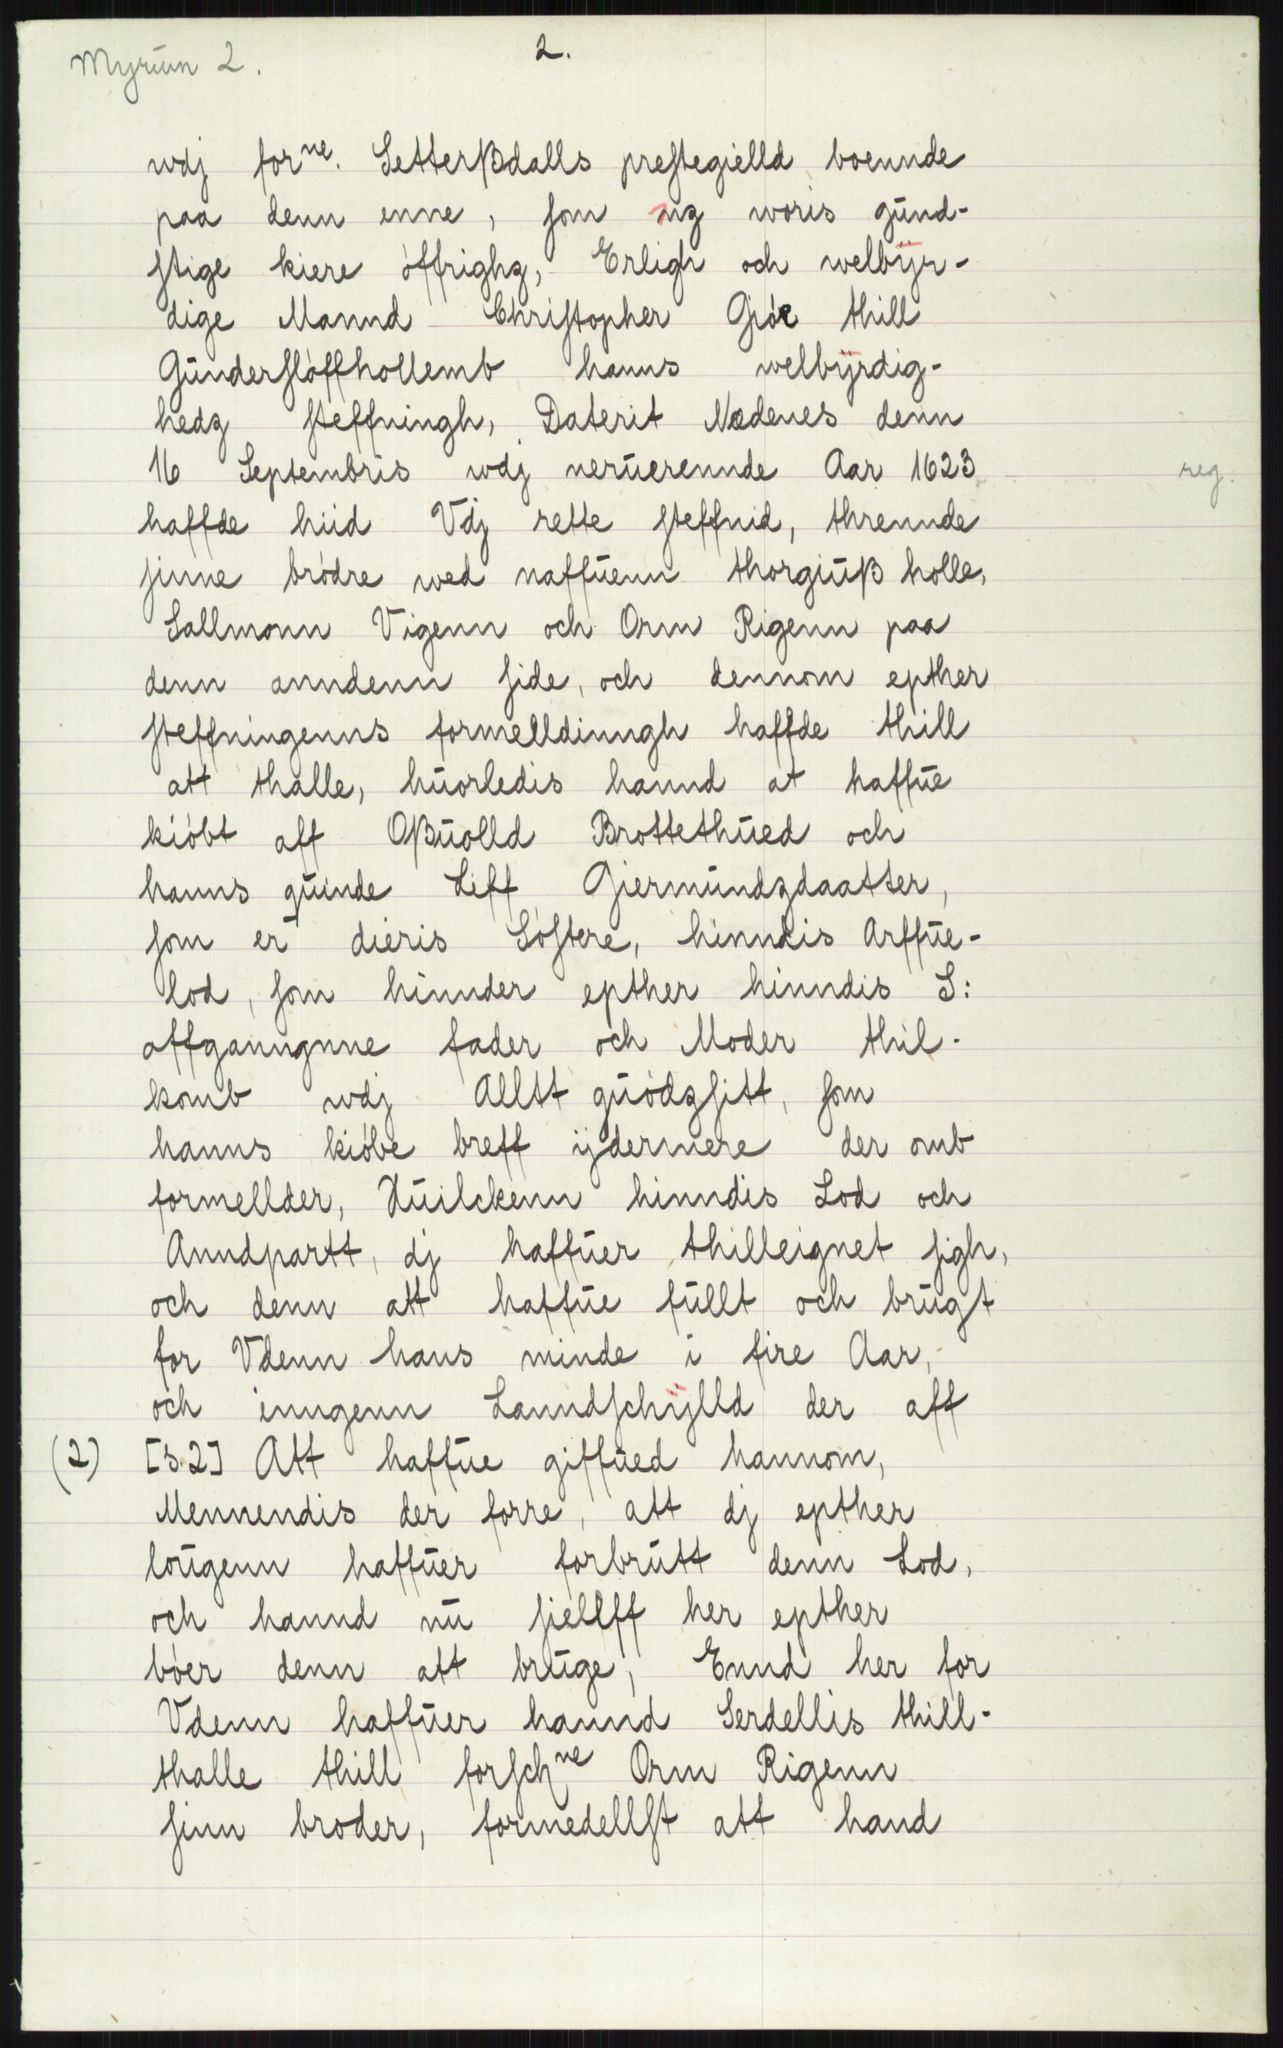 Myrum 2.
2.
wdj for^ne. Setterßdalls prestegielld boennde
paa denn enne, som mz woris gund-
stige kiere öffrighz, Erligh och welbÿr-
dige Mannd Christopher Giöe thill
Gunderslöffhollemb hanns welbÿrdig-
hedz steffningh, Daterit Nedenes denn
16 Septembris wdj neruerennde Aar 1623
reg.
haffde hiid Vdj rette steffnid, threnndе
sinne brödre wed naffuenn thorgiuß holle,
Sallmonn Vigenn och Orm Rigenn paa
denn anndenn side, och dennom epther
steffningenns formelldinngh haffde thill
att thalle, huorledis hannd at haffue
kiöbt aff Oßuolld Brottethued och
hanns quinde Liff Giermundzdaatter,
som er dieris Söstere, hinndis Arffue-
lod, som hinnder epther hinndis S:
affganngnne fader och Moder thil-
komb wdj Alltt guodzsitt, som
hanns kiöbe breff ÿdermere der omb
formellder, Huilckenn hinndis Lod och
Anndpartt, dj haffuer thilleignet sigh,
och denn att haffue fullt och brugt
for Vdenn hans minde i fire Aar,
och inngenn Lanndschÿlld der aff
(2) [s 2] Att haffue giffued hannom,
Mennendis der forre, att dj epther
lougenn haffuer forbrutt denn Lod,
och hannd nu siellff her epther
böer denn att bruge, Ennd her for
Vdenn haffuer hannd Serdellis thill-
thalle thill forsch^ne Orm Rigenn
sinn broder, formedellst att hand